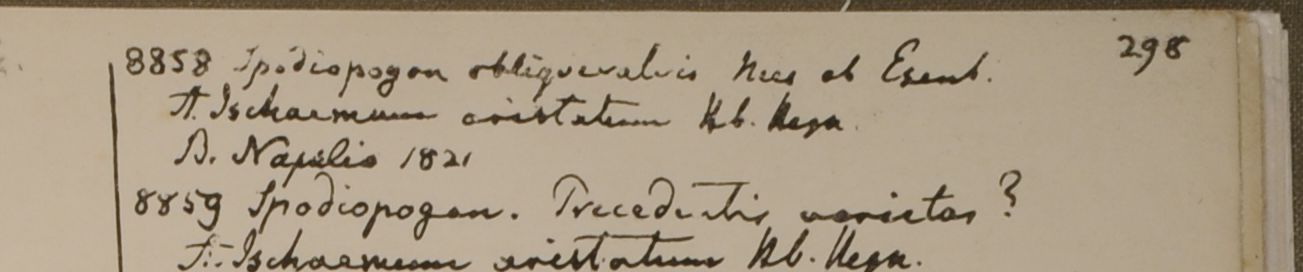 298
8858 Spodiopogon obliquevalvis Nees ab Esenb.
A. Ischaemum aristatum Hb. Heyn.
B. Napalia 1821
8859 Spodiopogon. Precedentis varietas?
A. Ischaemum aristatum Hb. Heyn.